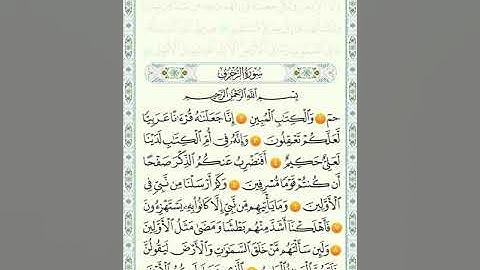 سُورَةُ الزُّخْرُفِ
بِسْمِ اللَّهِ الرَّحْمَٰنِ الرَّحِيمِ
حمٓ ١ وَالْكِتَابِ الْمُبِينِ ٢ إِنَّا جَعَلْنَاهُ قُرْءَانًا عَرَبِيًّا
لَّعَلَّكُمْ تَعْقِلُونَ ٣ وَإِنَّهُ فِي أُمِّ الْكِتَابِ لَدَيْنَا
لَعَلِيٌّ حَكِيمٌ ٤ أَفَنَضْرِبُ عَنكُمُ الذِّكْرَ صَفْحًا
أَن كُنتُمْ قَوْمًا مُّسْرِفِينَ ٥ وَكَمْ أَرْسَلْنَا مِن نَّبِيٍّ فِي
الْأَوَّلِينَ ٦ وَمَا يَأْتِيهِم مِّن نَّبِيٍّ إِلَّا كَانُوا بِهِ يَسْتَهْزِءُونَ
٧ فَأَهْلَكْنَا أَشَدَّ مِنْهُم بَطْشًا وَمَضَىٰ مَثَلُ الْأَوَّلِينَ
٨ وَلَئِن سَأَلْتَهُم مَّنْ خَلَقَ السَّمَاوَاتِ وَالْأَرْضَ لَيَقُولُنَّ